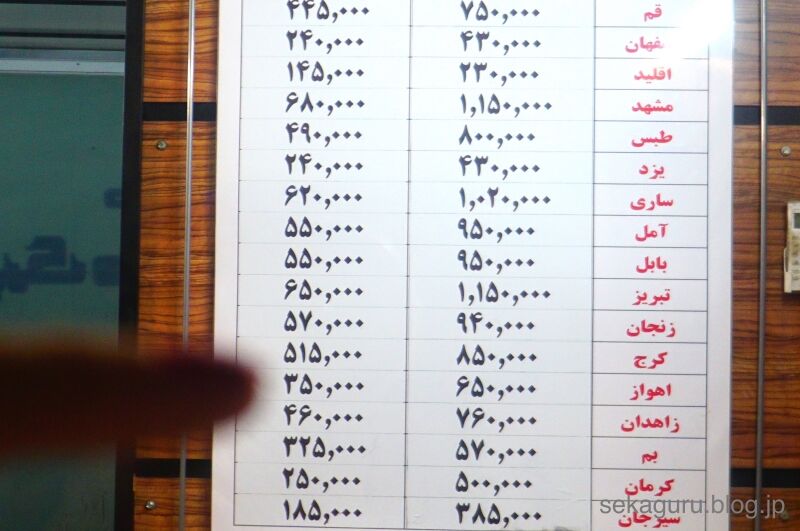 قم ۷۵۰,۰۰۰ ۴۴۵,۰۰۰
۴۳۰,۰۰۰ ۲۴۰,۰۰۰
اقلید ۲۳۰,۰۰۰ ۱۴۵,۰۰۰
مشهد ۱,۱۵۰,۰۰۰ ۶۸۰,۰۰۰
طبس ۸۰۰,۰۰۰ ۴۹۰,۰۰۰
یزد ۴۳۰,۰۰۰ ۲۴۰,۰۰۰
ساری ۱,۰۲۰,۰۰۰ ۶۲۰,۰۰۰
آمل ۹۵۰,۰۰۰ ۵۵۰,۰۰۰
بابل ۹۵۰,۰۰۰ ۵۵۰,۰۰۰
تبریز ۱,۱۵۰,۰۰۰ ۶۵۰,۰۰۰
زنجان ۹۴۰,۰۰۰ ۵۷۰,۰۰۰
کرج ۸۵۰,۰۰۰ ۵۱۵,۰۰۰
اهواز ۶۵۰,۰۰۰ ۳۵۰,۰۰۰
زاهدان ۷۶۰,۰۰۰ ۴۶۰,۰۰۰
بم ۵۷۰,۰۰۰ ۳۲۵,۰۰۰
کرمان ۵۰۰,۰۰۰ ۲۵۰,۰۰۰
سیرجان ۳۸۵,۰۰۰ ۱۸۵,۰۰۰
sekaguru.blog.jp